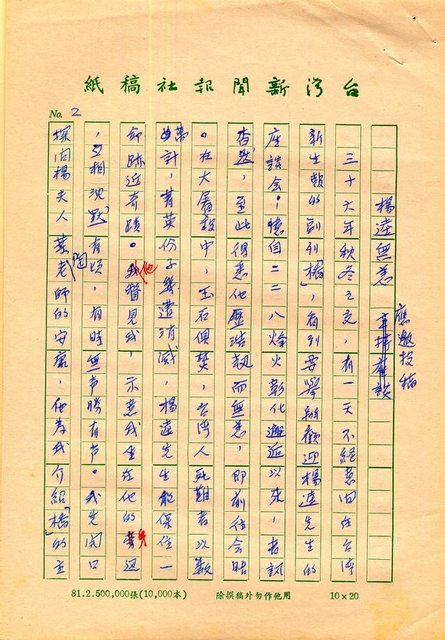 台灣新聞報社稿紙
No. 2
楊逵無恙
應邀投稿
三十六年秋冬之交，有一天不經意間在台灣
新生報的副刊「橋」，看到要舉辦歡迎楊逵先生的
座談會；憶自二二八烽火彰化邂逅以先，音訊
杳然，至此得悉他歷浩劫而無恙，即前往會晤
。在大屠殺中，玉石俱焚，台灣人死難者以數
萬計，菁英份子幾遭消滅，楊逵先生能保住一
命跡近奇蹟。他瞥見我，示意我坐在他的旁邊
，互相沈默有頃，有時無声勝有声。我先開口
探問楊夫人葉陶老師的安富，他為我介紹「橋」的主
81.2.500,000張(10,000本)
除撰稿外勿作他用
10×20